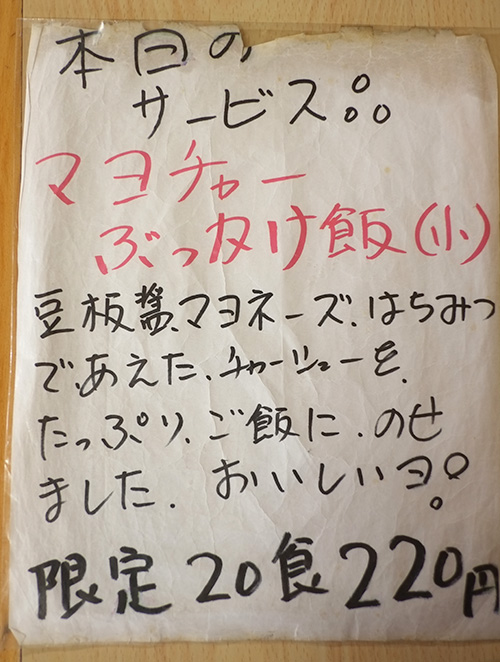 本日の
サービス
マヨチャー
ぶっかけ飯(小)
豆板醤、マヨネーズ、はちみつ
で、あえた、チャーシューを、
たっぷり、ご飯に、のせ
ました、おいしいヨ!
限定20食220円